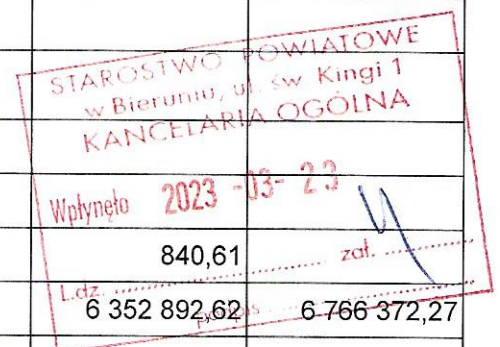 STAROSTWO POWIATOWE
w Bieruniu, ul. św. Kingi 1
KANCELARIA OGÓLNA
Wpłynęło 2023 -03- 23
840,61 zał.
L.dz.
6 352 892,62 podpis 6 766 372,27